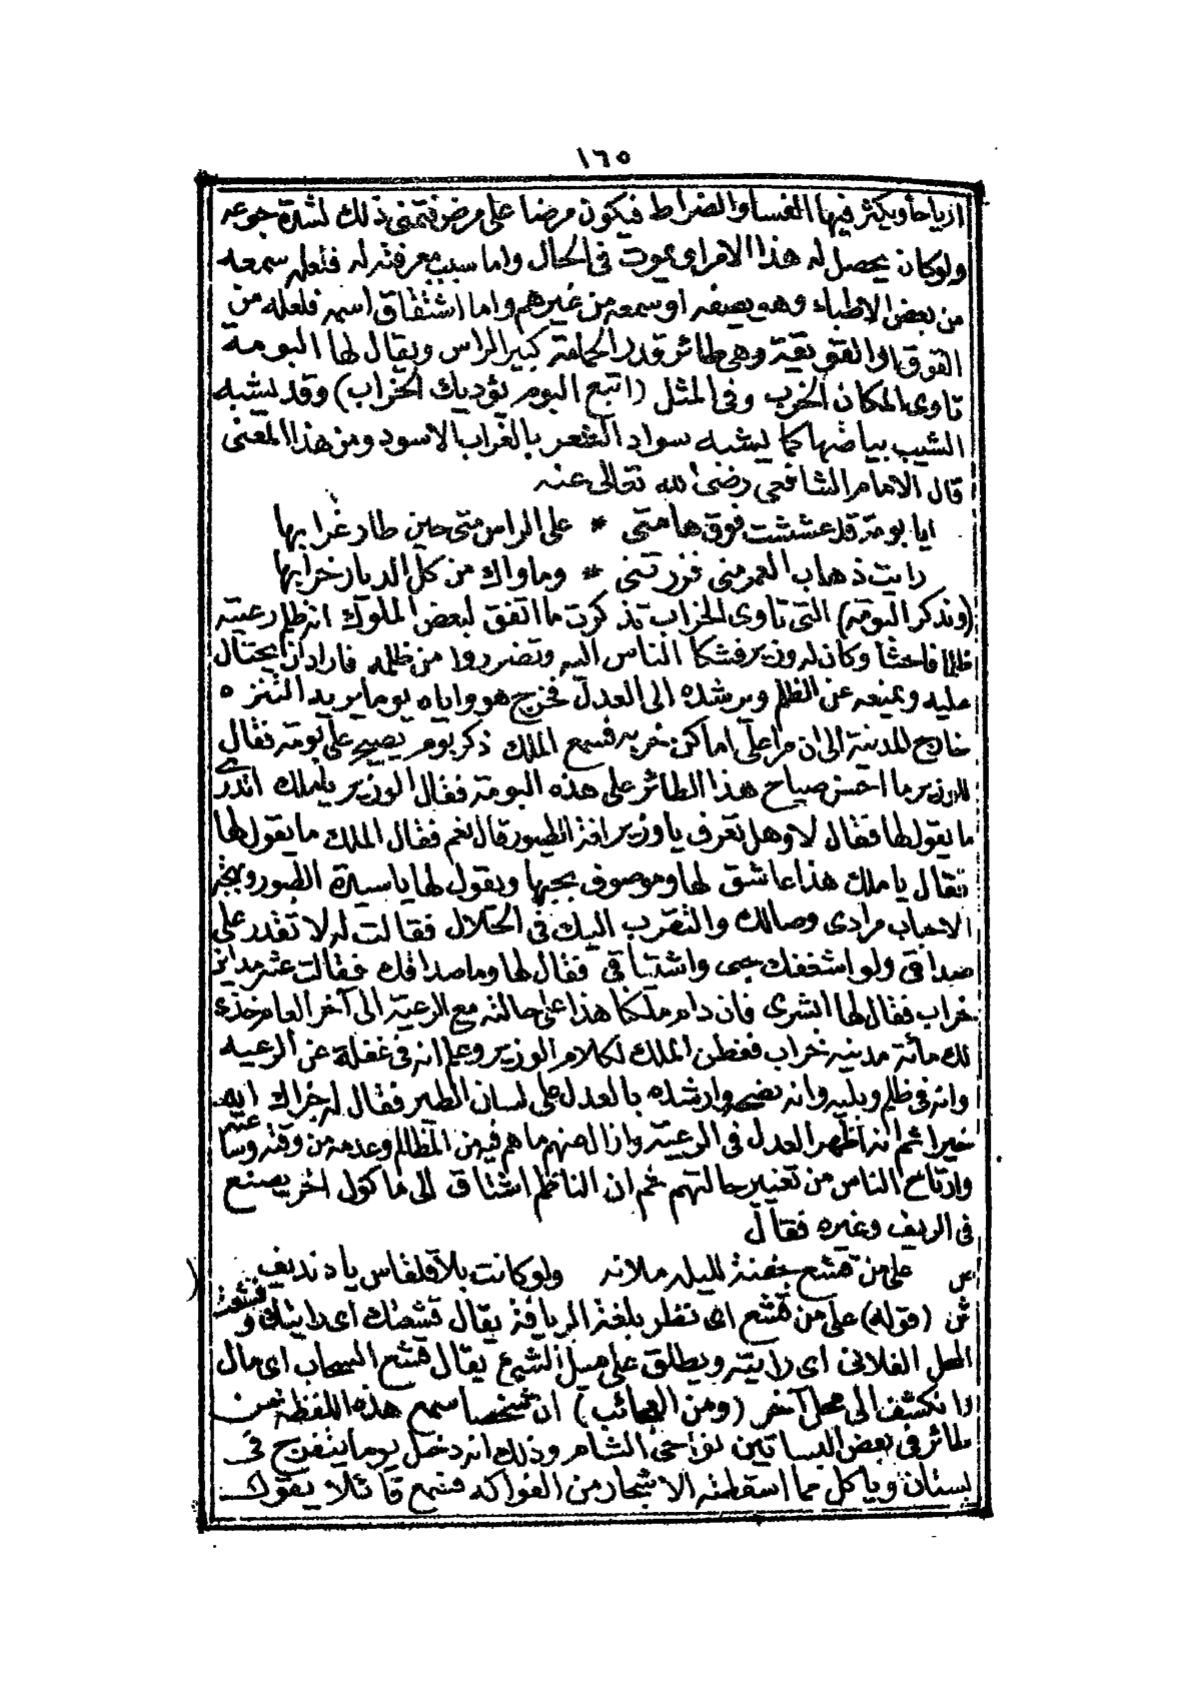 ١٦٥
ارياحا ويكثر فيها الفسا والضراط فيكون مرضا على مرض فتمنى ذلك لشدة جوعه
ولو كان يحصل له هذا الامر او يموت فى الحال واما سبب معرفته له فلعله سمعه
من بعض الاطباء وهو يصفه او سمعه من غيرهم واما اشتقاق اسمه فلعله من
القوق او القويقة وهى طائر قدر الحمامة كبير الراس ويقال لها البومة
تاوى المكان الخرب وفى المثل (اتبع البوم يؤديك الخراب) وقد يشبه
الشيب ببياضها كما يشبه سواد الشعر بالغراب الاسود ومن هذا المعنى
قال الامام الشافعى رضى الله تعالى عنه
ايا بومة قد عششت فوق هامتى * على الراس متى حين طار غرابها
رايت ذهاب العمر منى فزرتنى * وماواك من كل الديار خرابها
(وبذكر البومة) التى تاوى الخراب تذكرت ما اتفق لبعض الملوك انه ظلم رعيته
ظلما فاحشا وكان له وزير فشكا الناس اليه وتضرروا من ظلمه فاراد ان يحتال
عليه ويمنعه عن الظلم ويرشده الى العدل فخرج هو واياه يوما يريد التنزه
خارج المدينة الى ان مرا على اماكن خربه فسمع الملك ذكر بوم يصيح على بومة فقال
للوزير ما احسن صياح هذا الطائر على هذه البومة فقال الوزير يا ملك اتدرى
ما يقول لها فقال لا وهل تعرف يا وزير لغة الطيور قال نعم فقال الملك ما يقول لها
فقال يا ملك هذا عاشق لها وموصوف بحبها ويقول لها يا سيدة الطيور وبهجة
الاحباب مرادى وصالك والتقرب اليك فى الحلال فقالت له لا تقدر على
صداقى ولو اشغفك حبى واشتياقى فقال لها وما صداقك فقالت عشر مداين
خراب فقال لها ابشرى فان دام ملكنا هذا على حالته مع الرعية الى آخر العام خذى
لك مائة مدينه خراب ففطن الملك لكلام الوزير وعلم انه فى غفلة عن الرعيه
وانه فى ظلم وبليه وانه نصحه وارشده بالعدل على لسان الطير فقال له جزاك الله عنى
خيرا ثم انه اظهر العدل فى الرعية وازال عنهم ما هم فيه من المظالم وعدمه من وقته وساعته
وارتاح الناس من تغيير حالتهم ثم ان الناظم اشتاق الى ماكول آخر يصنع
فى الريف وغيره فقال
ص على من قشع جفنة لليله ملانه ولو كانت بلا قلفاس يا دنديف
ش (قوله) على من قشع اى نظر بلغة الريافة يقال قشعتك اى رايتك وقشعت
المحل الفلانى اى رايته ويطلق على ميل الشيئ يقال قشع السحاب اى مال
وانكشف الى محل آخر (ومن العجائب) ان شخصا سمع هذه اللفظة من
طائر فى بعض البساتين بنواحى الشام وذلك انه دخل يوما يتفرج فى
بستان وياكل مما اسقطته الاشجار من الفواكه فسمع قائلا يقول